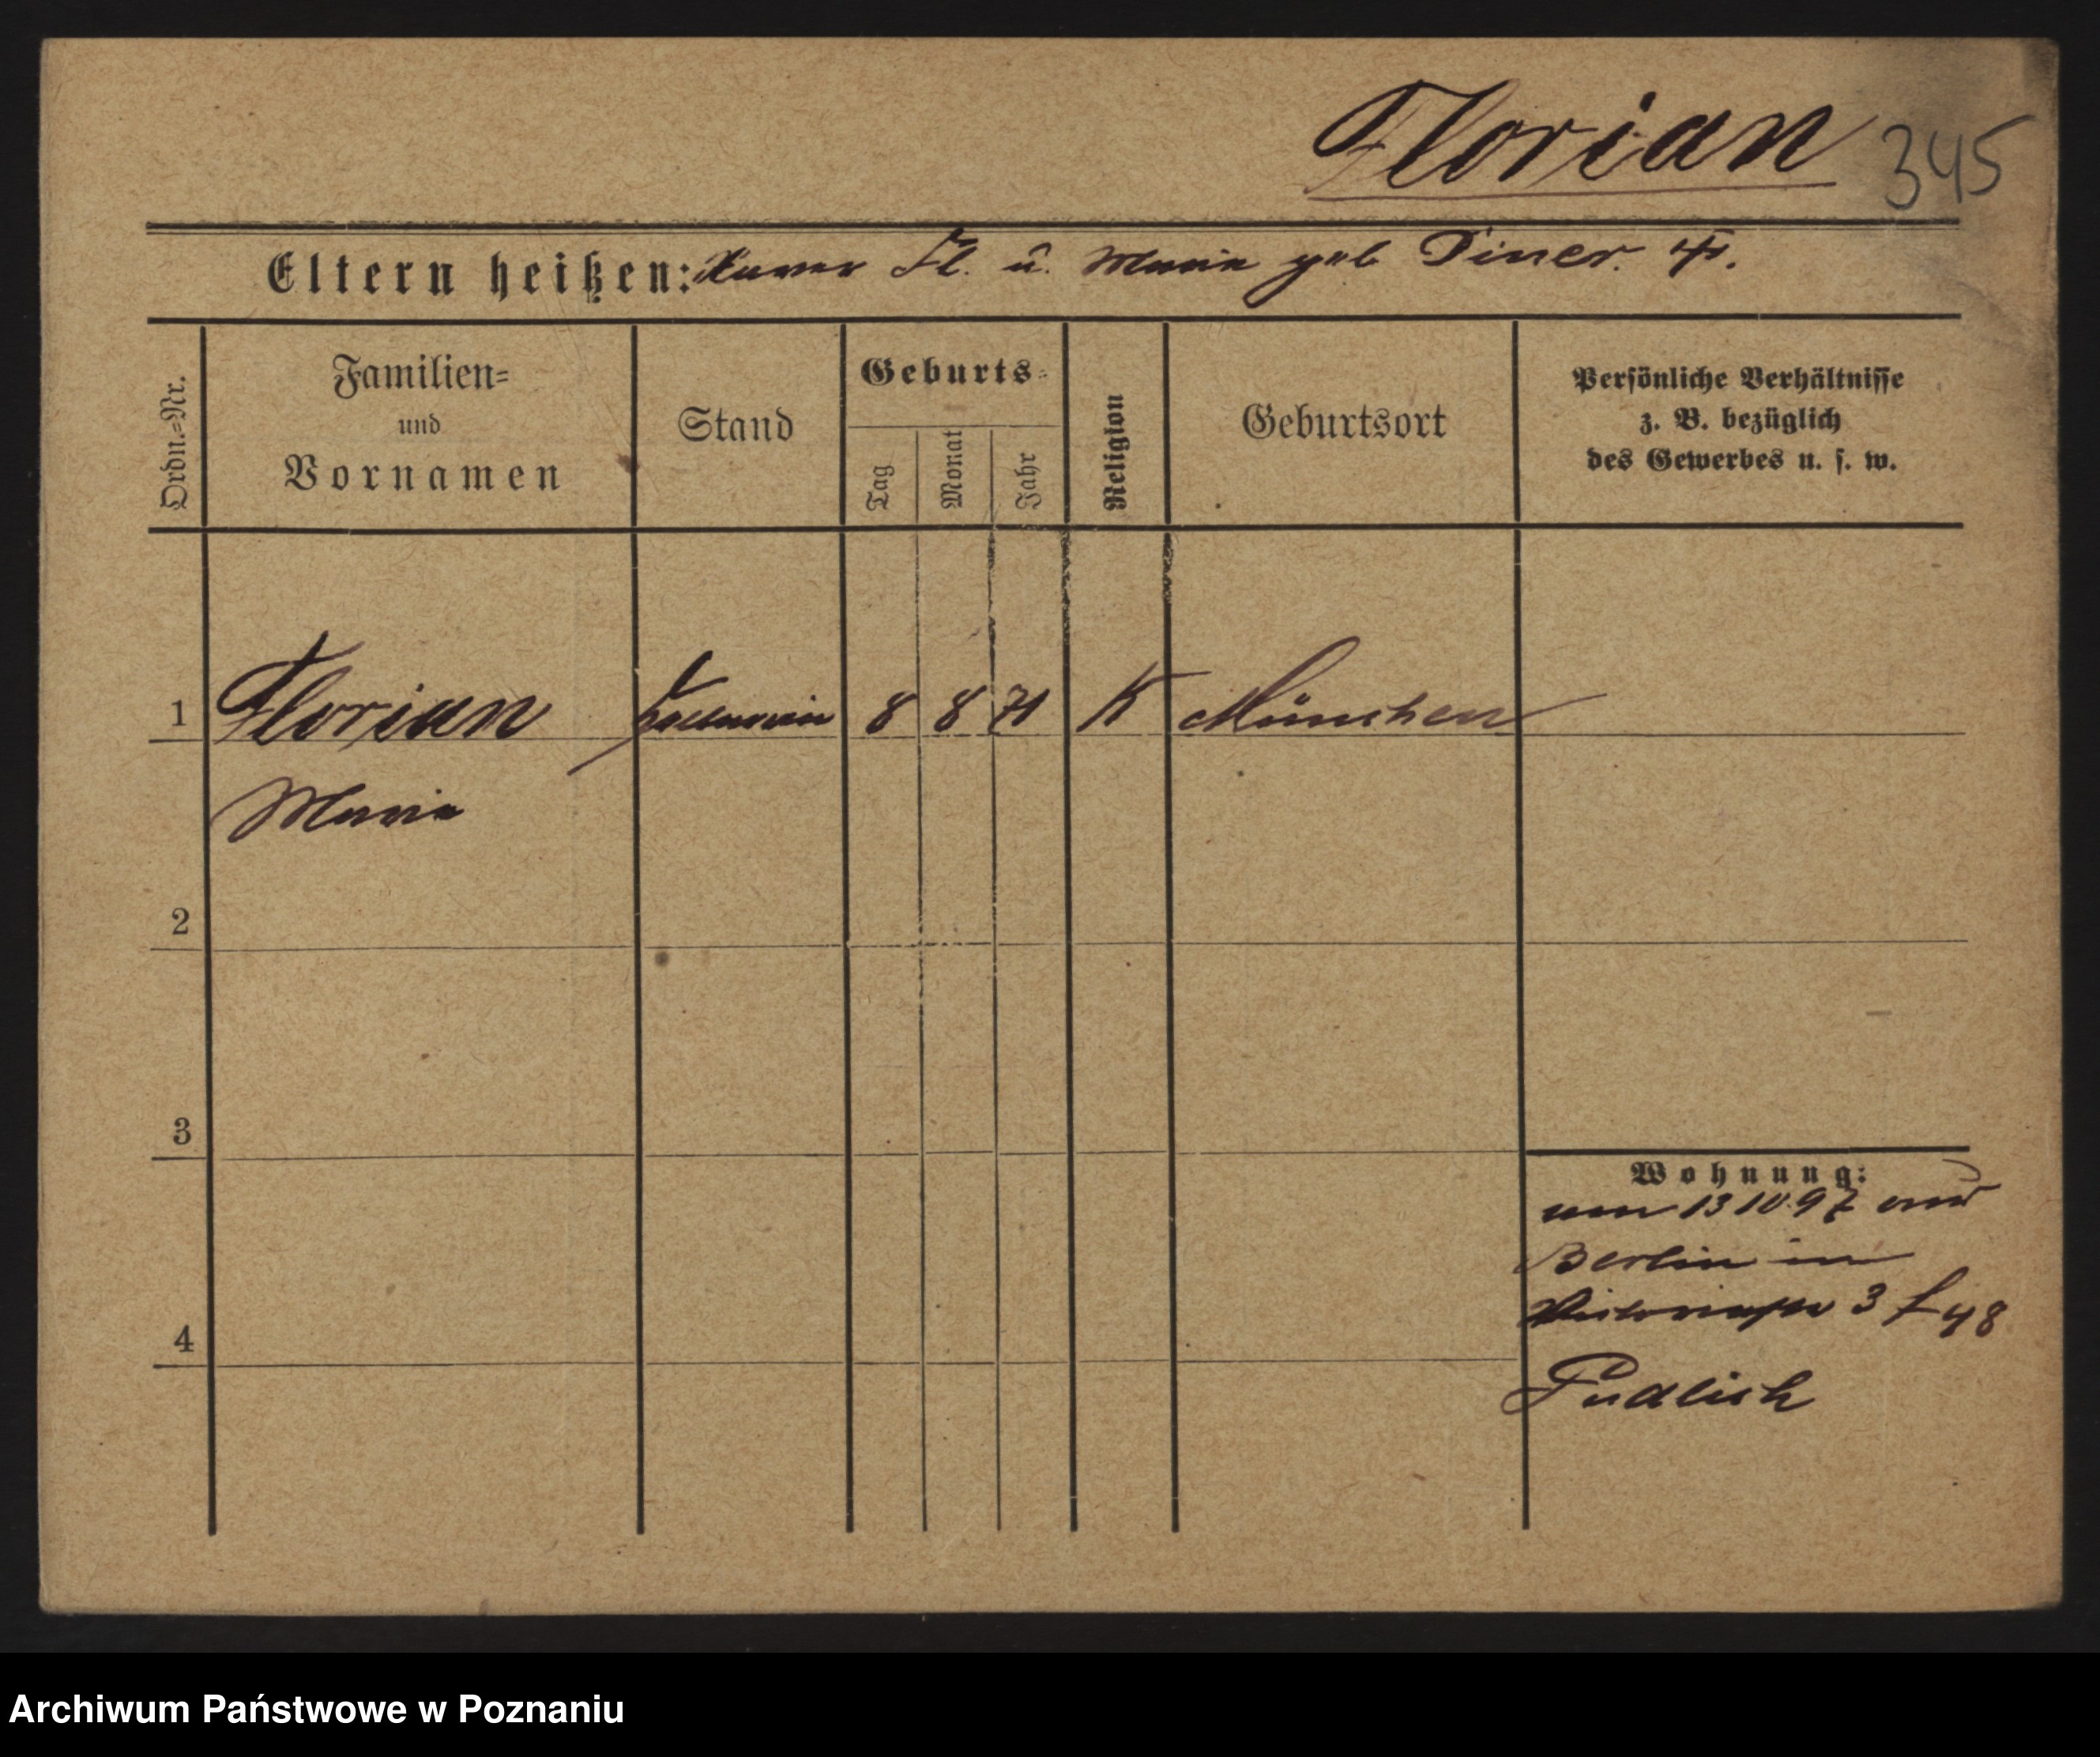 Florian 345
Eltern heißen: Xaver Fl. u. Maria geb Diner.
Ordn.=Nr.
Familien=
und
Vornamen
Stand
Geburts=
Tag
Monat
Jahr
Religion
Geburtsort
Persönliche Verhältnisse
z. B. bezüglich
des Gewerbes u. s. w.
1 Florian Kellnerin 8 8 71 K München
Maria
2
3
Wohnung:
13 10 97
Berlin in
Victoriastr 3
4
Archiwum Państwowe w Poznaniu